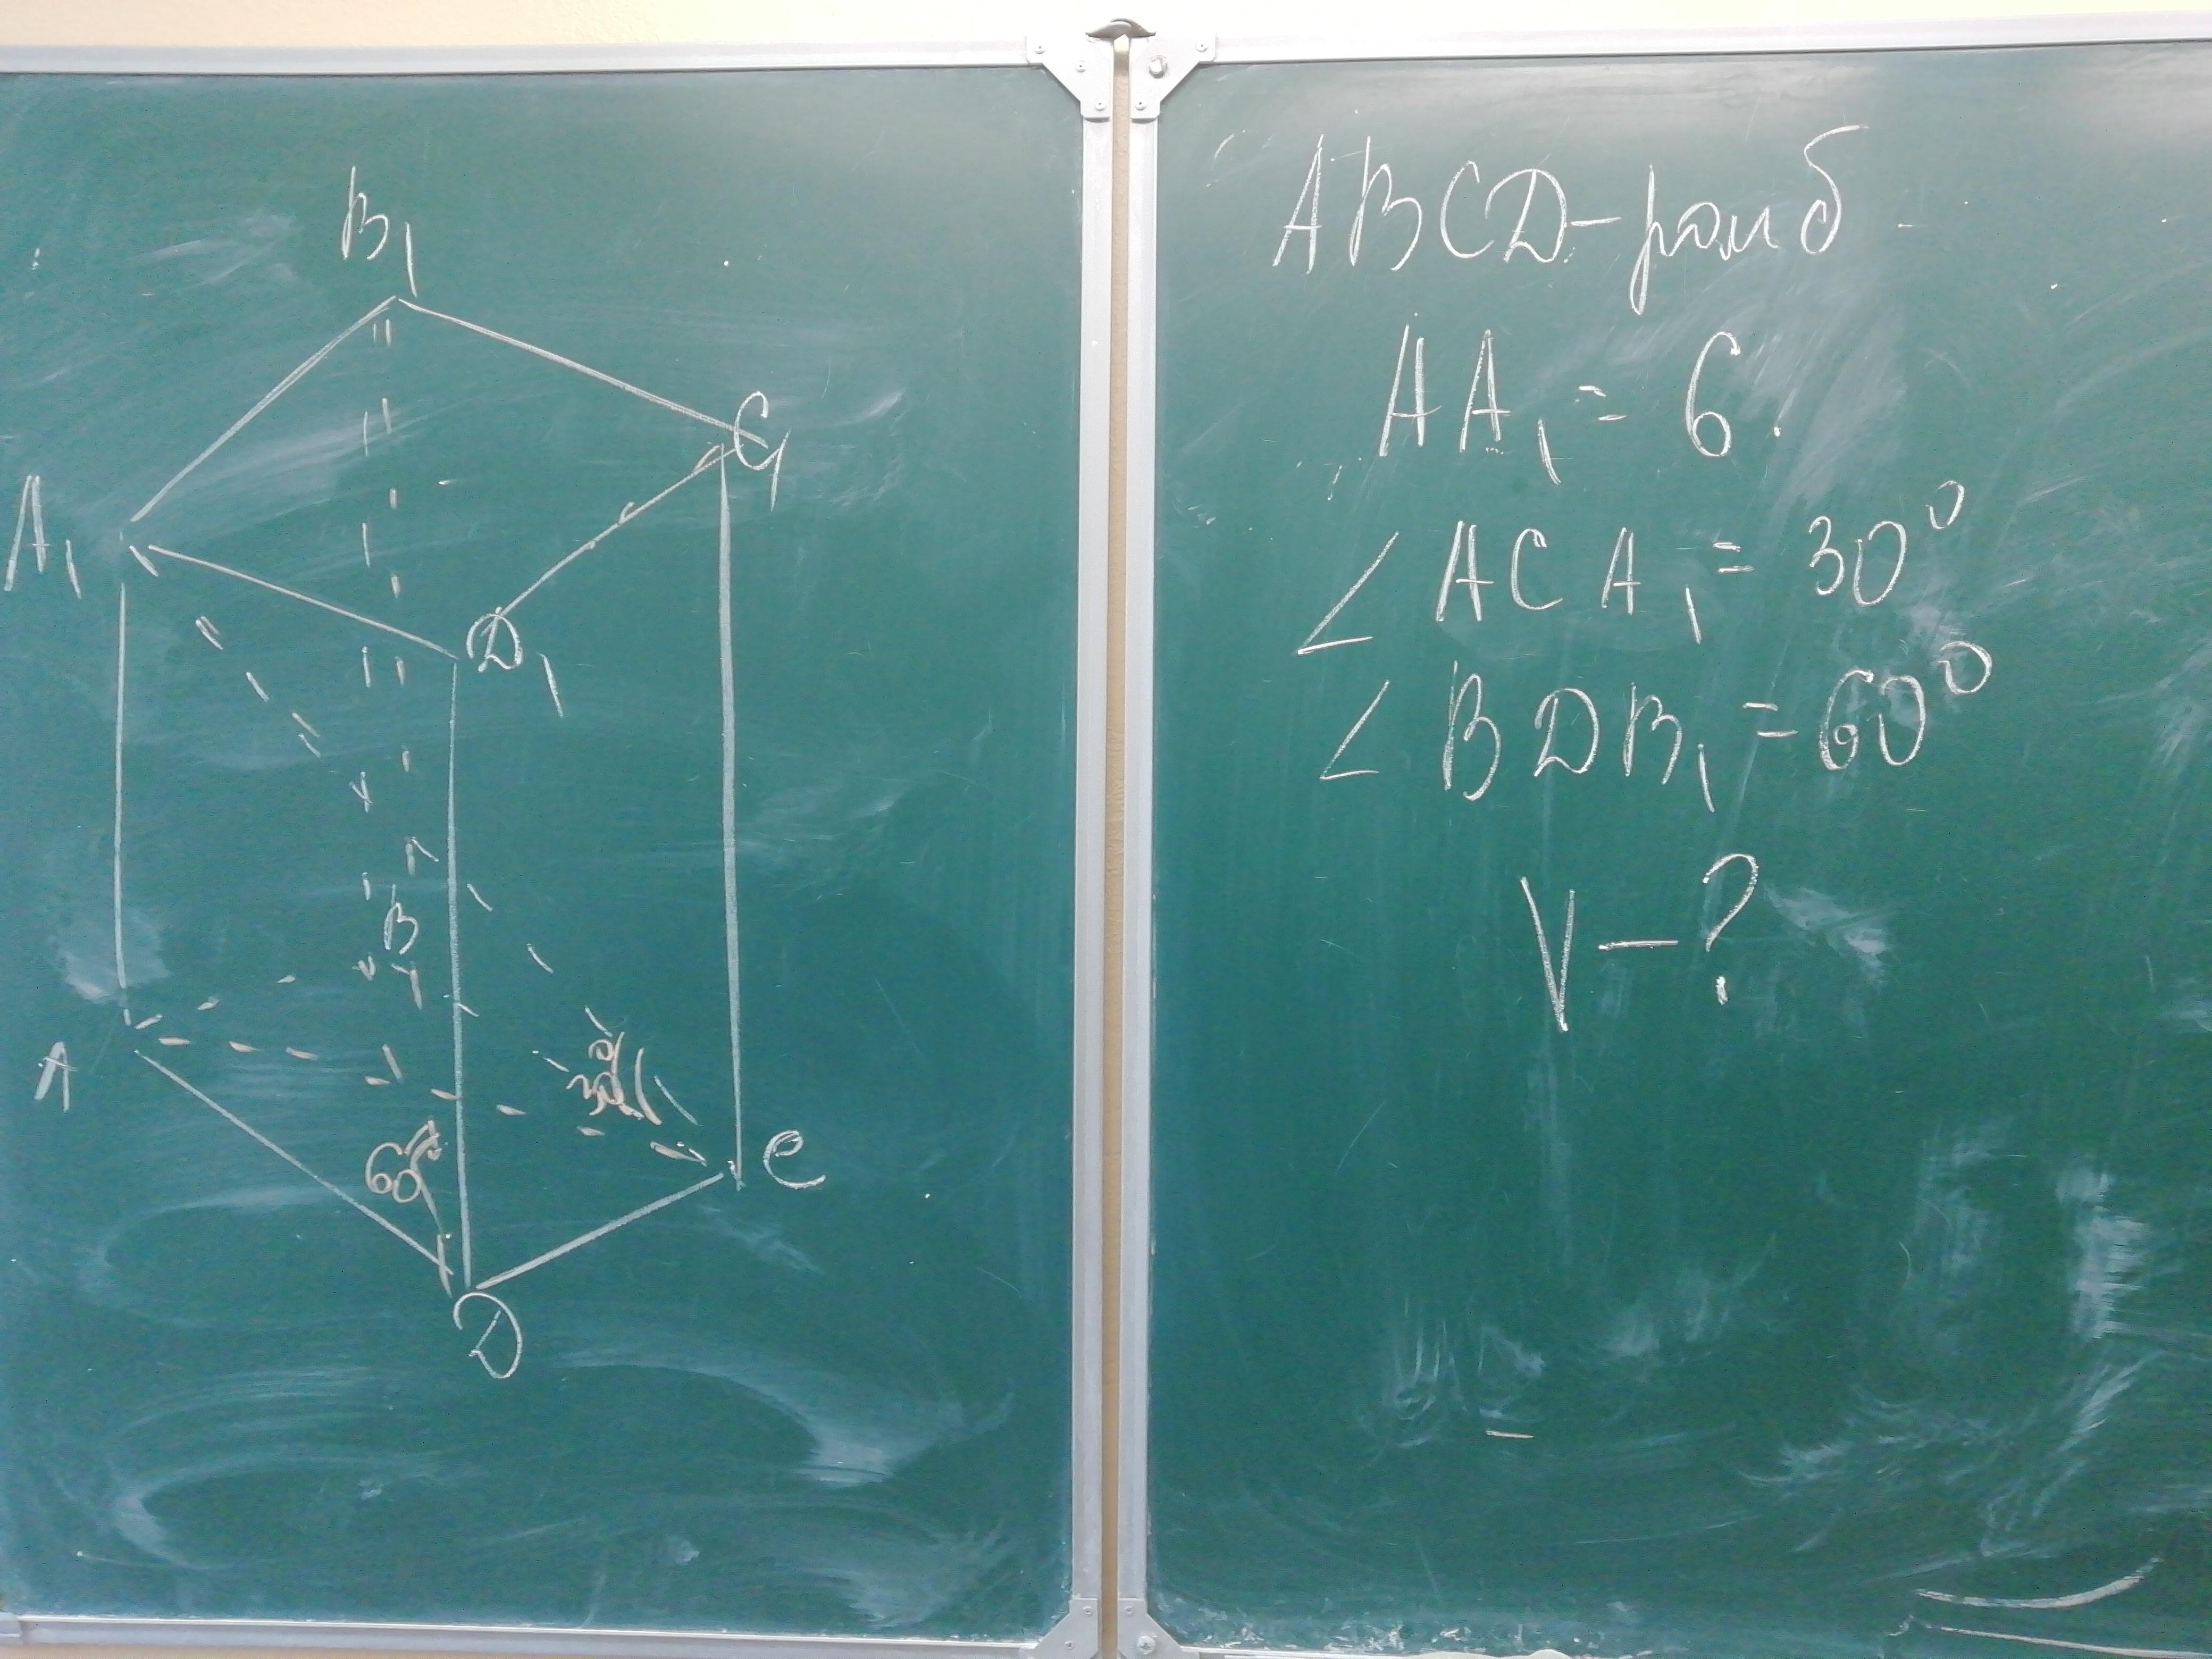 B₁
C₁
A₁
D₁
B
30°
A
60°
C
D
ABCD-ромб
AA₁ = 6
∠ACA₁ = 30°
∠BDB₁ = 60°
V-?